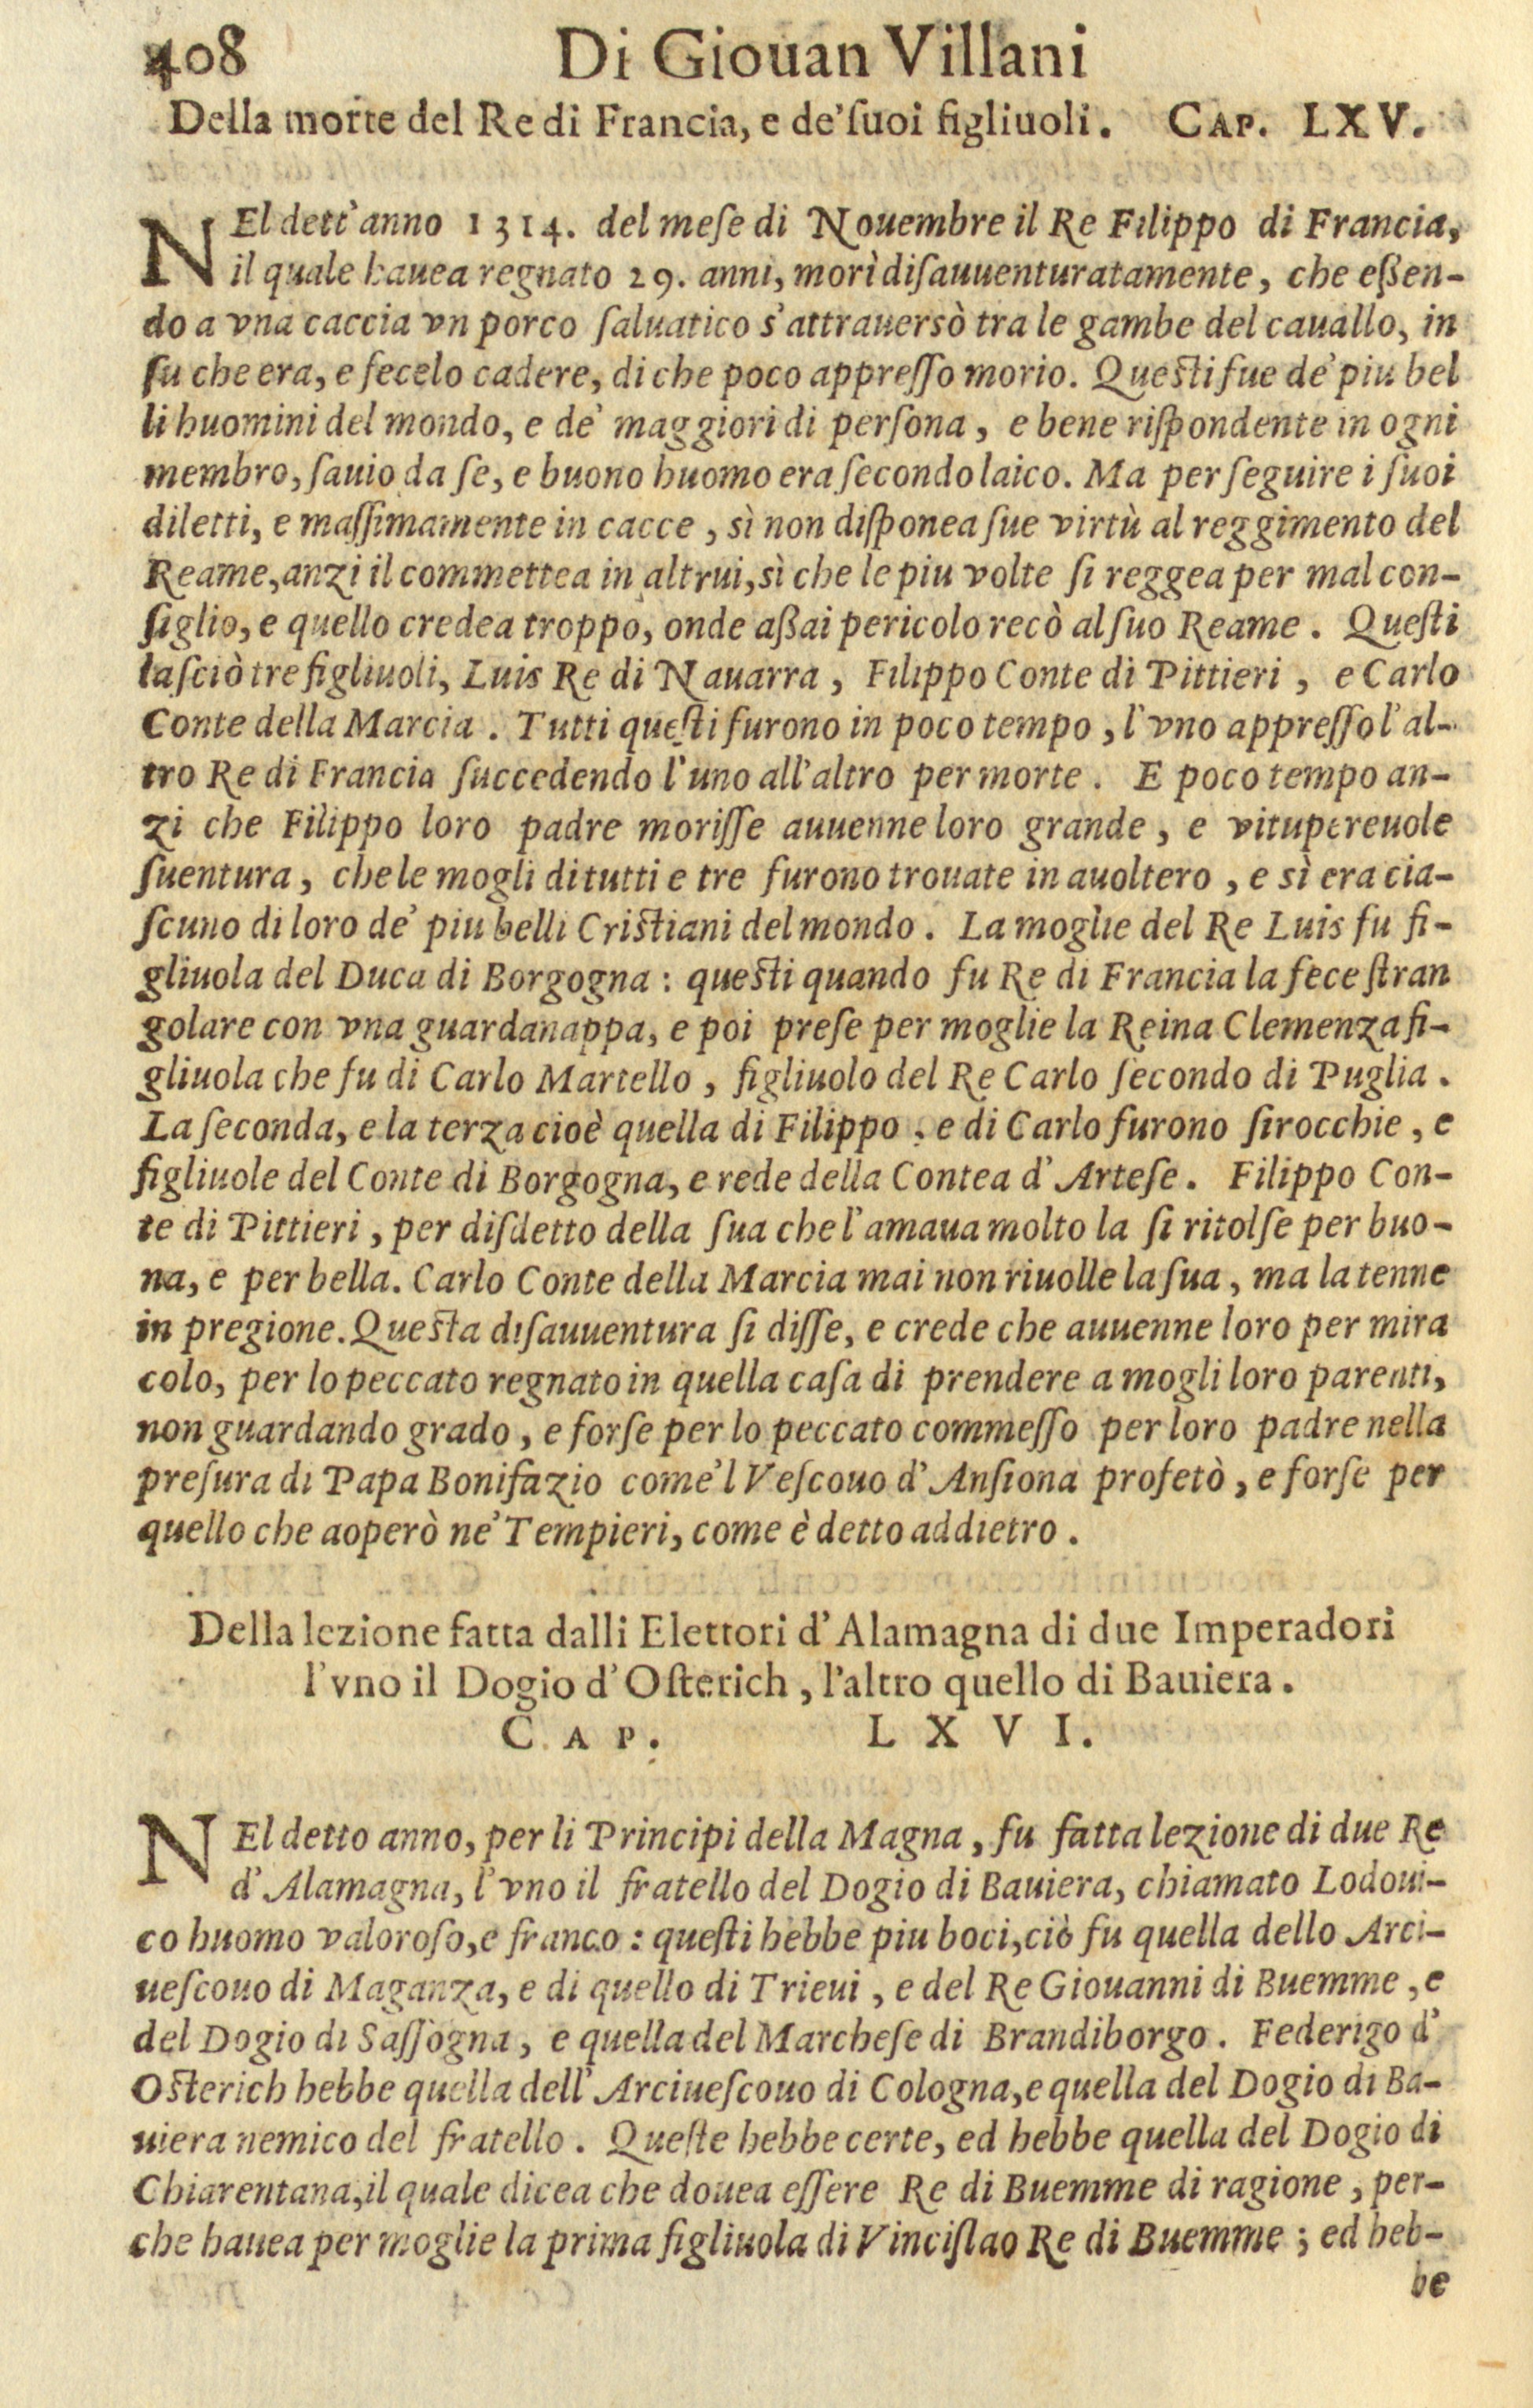 408 Di Giouan Villani
Della morte del Re di Francia, e de'ſuoi figliuoli. CAP. LXV.
NEl dett'anno 1314. del meſe di Nouembre il Re Filippo di Francia,
il quale hauea regnato 29. anni, morì diſauuenturatamente, che eßen-
do a vna caccia vn porco ſaluatico s'attrauersò tra le gambe del cauallo, in
ſu che era, e fecelo cadere, di che poco appreſſo morio. Queſti fue de' piu bel
li huomini del mondo, e de' maggiori di perſona, e bene riſpondente in ogni
membro, ſauio da ſe, e buono huomo era ſecondo laico. Ma per ſeguire i ſuoi
diletti, e maſſimamente in cacce, sì non diſponea ſue virtù al reggimento del
Reame, anzi il commettea in altrui, sì che le piu volte ſi reggea per mal con-
ſiglio, e quello credea troppo, onde aßai pericolo recò al ſuo Reame. Queſti
laſciò tre figliuoli, Luis Re di Nauarra, Filippo Conte di Pittieri, e Carlo
Conte della Marcia. Tutti queſti furono in poco tempo, l'vno appreſſo l'al-
tro Re di Francia ſuccedendo l'uno all'altro per morte. E poco tempo an-
zi che Filippo loro padre moriſſe auuenne loro grande, e vitupereuole
ſuentura, che le mogli di tutti e tre furono trouate in auoltero, e sì era cia-
ſcuno di loro de' piu belli Criſtiani del mondo. La moglie del Re Luis fu fi-
gliuola del Duca di Borgogna: queſti quando fu Re di Francia la fece ſtran
golare con vna guardanappa, e poi preſe per moglie la Reina Clemenza fi-
gliuola che fu di Carlo Martello, figliuolo del Re Carlo ſecondo di Puglia.
La ſeconda, e la terza cioè quella di Filippo, e di Carlo furono ſirocchie, e
figliuole del Conte di Borgogna, e rede della Contea d'Arteſe. Filippo Con-
te di Pittieri, per diſdetto della ſua che l'amaua molto la ſi ritolſe per buo-
na, e per bella. Carlo Conte della Marcia mai non riuolle la ſua, ma la tenne
in pregione. Queſta diſauuentura ſi diſſe, e crede che auuenne loro per mira
colo, per lo peccato regnato in quella caſa di prendere a mogli loro parenti,
non guardando grado, e forſe per lo peccato commeſſo per loro padre nella
preſura di Papa Bonifazio come'l Veſcouo d'Anſiona profetò, e forſe per
quello che aoperò ne'Tempieri, come è detto addietro.
Della lezione fatta dalli Elettori d'Alamagna di due Imperadori
l'vno il Dogio d'Oſterich, l'altro quello di Bauiera.
CAP. LXVI.
NEl detto anno, per li Principi della Magna, fu fatta lezione di due Re
d'Alamagna, l'vno il fratello del Dogio di Bauiera, chiamato Lodoui-
co huomo valoroſo, e franco: queſti hebbe piu boci, ciò fu quella dello Arci-
ueſcouo di Maganza, e di quello di Trieui, e del Re Giouanni di Buemme, e
del Dogio di Saſſogna, e quella del Marcheſe di Brandiborgo. Federigo d'
Oſterich hebbe quella dell'Arciueſcouo di Cologna, e quella del Dogio di Ba-
uiera nemico del fratello. Queſte hebbe certe, ed hebbe quella del Dogio di
Chiarentana, il quale dicea che douea eſſere Re di Buemme di ragione, per-
che hauea per moglie la prima figliuola di Vinciſlao Re di Buemme; ed heb-
be